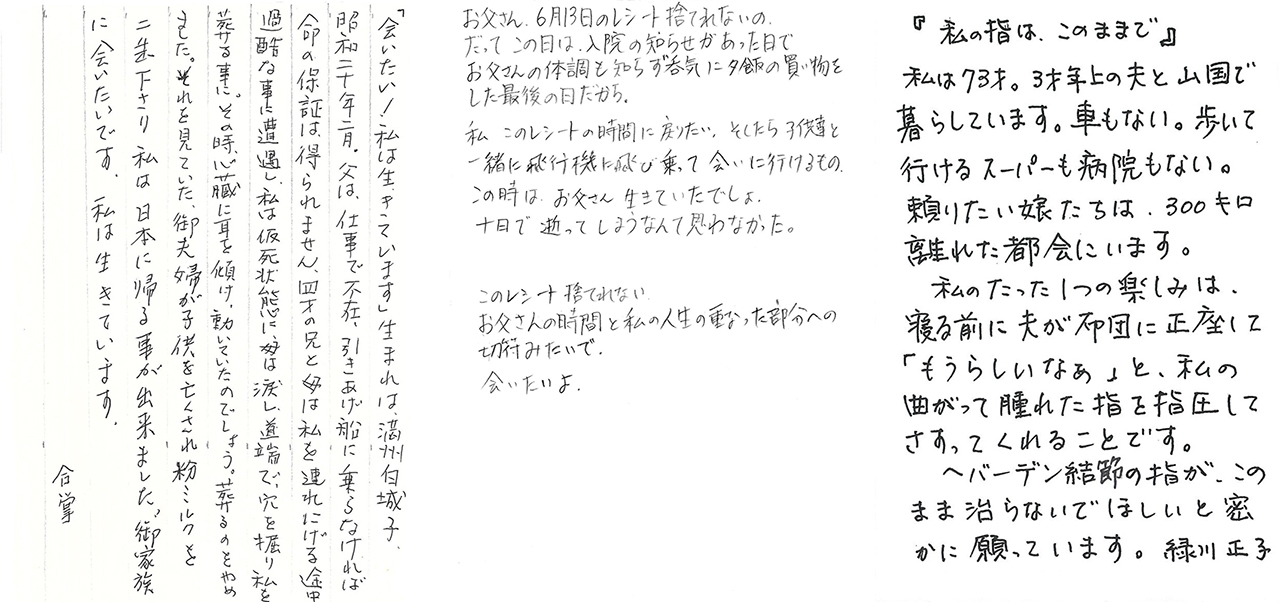 「会いたい！私は生きています」生まれは、満州白城子、
昭和二十年二月。父は、仕事で不在、引きあげ船に乗らなければ
命の保証は得られません、四才の兄と母は私を連れにげる途中
過酷な事に遭遇し、私は仮死状態に、母は涙し、道端で、穴を掘り私を
葬る事に。その時、心臓に耳を傾け、動いていたのでしょう。葬るのをやめ
ました。それを見ていた、御夫婦が子供を亡くされ粉ミルクを
二缶下さり私は日本に帰る事が出来ました。御家族
に会いたいです。私は生きています。
合掌
お父さん、6月13日のレシート捨てれないの。
だってこの日は、入院の知らせがあった日で
お父さんの体調も知らず呑気に夕飯の買い物を
した最後の日だから。
私 このレシートの時間に戻りたい。そしたら子供達と
一緒に飛行機に飛び乗って会いに行けるもの。
この時は、お父さん生きていたでしょ。
十日で逝ってしまうなんて思わなかった。
このレシート捨てれない
お父さんの時間と私の人生の重なった部分への
切符みたいで。
会いたいよ。
『私の指は、このままで』
私は73才。3才年上の夫と山国で
暮らしています。車もない。歩いて
行けるスーパーも病院もない。
頼りたい娘たちは、300キロ
離れた都会にいます。
私のたった1つの楽しみは、
寝る前に夫が布団に正座して
「もうらしいなぁ」と、私の
曲がって腫れた指を指圧して
さすってくれることです。
ヘバーデン結節の指が、この
まま治らないでほしいと密
かに願っています。緑川正子